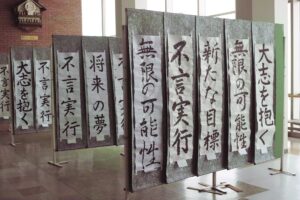 大志を抱く
無限の可能性
新たな目標
不言実行
無限の可能性
将来の夢
不言実行
大志を抱く
不言実行